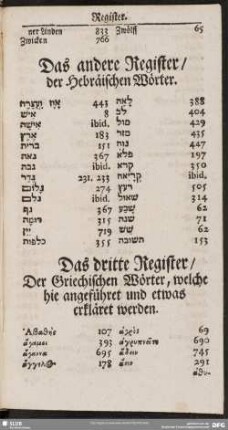 Register.
ner Linden 833 Zwölff 65
Zwicken 766
Das andere Register/
der Hebräischen Wörter.
443 לאה 388
איש 8 לב 404
אישה ibid. מול 429
ארץ 183 מור 435
ברית 151 נוח 447
גאה 367 פלא 197
ibid. קרא 350
גדר 231. 233 קריאה ibid.
274 רעץ 505
גלום ibid. שאול 314
גף 367 שבע 62
דומה 315 שנה 71
יין 719 שש 62
כלפות 355 תשובה 153
Das dritte Register/
Der Griechischen Wörter, welche
hie angeführet und etwas
erkläret werden.
107 69
ἄγαμοι 393 ἀγρυπνία 690
695 ᾅδην 745
178 291